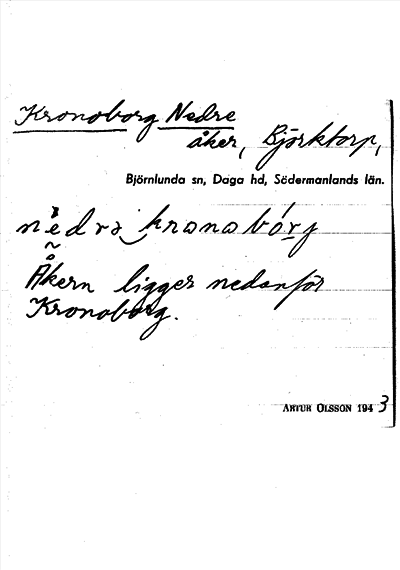 Kronoborg Nedre
åker, Björktorp,
Björnlunda sn, Daga hd, Södermanlands län.
nedra kronobórj
Åkern ligger nedanför
Kronoborg.
ARTUR OLSSON 1943